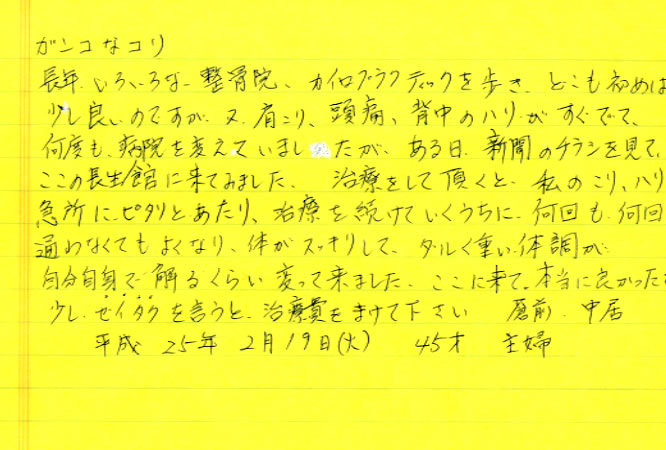 ガンコなコリ
長年、いろいろな整骨院、カイロプラクティックを歩き、どこも初めは
少し良いのですが、又、肩こり、頭痛、背中のハリがすぐでて、
何度も、病院を変えていましたが、ある日、新聞のチラシを見て、
ここの長生館に来てみました。 治療をして頂くと、私のこり、ハリ
急所にピタリとあたり、治療を続けていくうちに、何回も、何回
通わなくてもよくなり、体がスッキリして、ダルく重い体調が
自分自身で解るくらい変って来ました。ここに来て、本当に良かった
少し、ゼイタクを言うと、治療費をまけて下さい 中居
平成 25年 2月19日(火) 45才 主婦